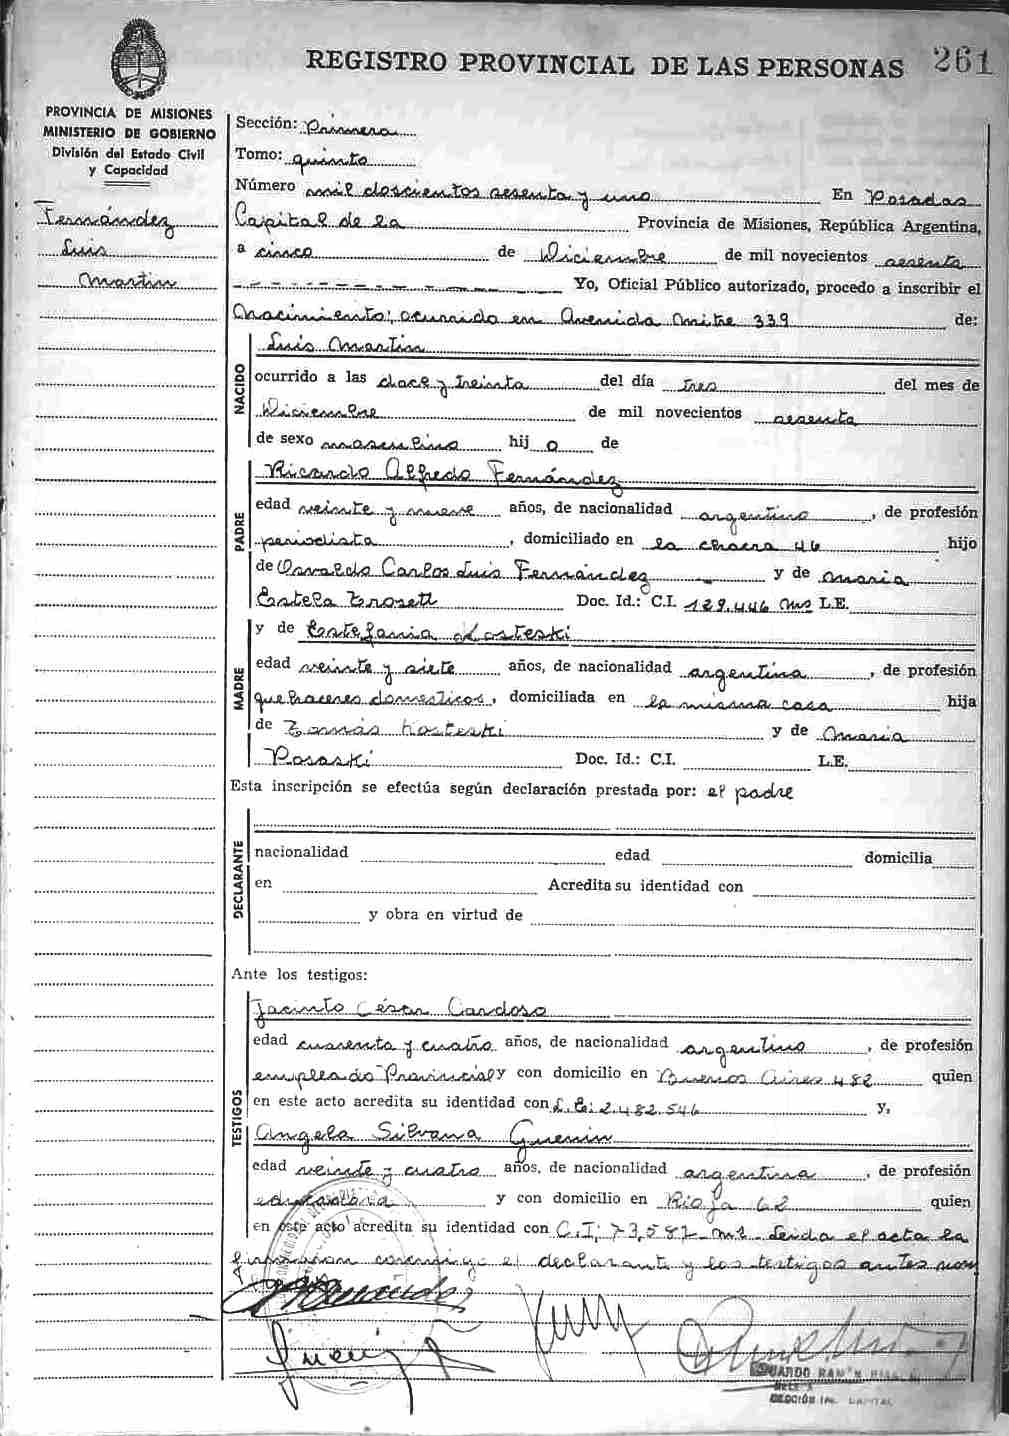 REGISTRO PROVINCIAL DE LAS PERSONAS 261
PROVINCIA DE MISIONES
MINISTERIO DE GOBIERNO
División del Estado Civil
y Capacidad
Fernández
Luis
Martin
Sección: Primera
Tomo: quinto
Número mil doscientos sesenta y uno En Posadas
Capital de la Provincia de Misiones, República Argentina,
a cinco de Diciembre de mil novecientos sesenta
Yo, Oficial Público autorizado, procedo a inscribir el
Nacimiento; ocurrido en Avenida Mitre 339 de:
NACIDO
Luis Martin
ocurrido a las doce y treinta del día tres del mes de
Diciembre de mil novecientos sesenta
de sexo masculino hij o de
PADRE
Ricardo Alfredo Fernández
edad veinte y nueve años, de nacionalidad argentino, de profesión
periodista, domiciliado en la chacra 46 hijo
de Osvaldo Carlos Luis Fernández y de Maria
Estela Doc. Id.: C.I. 129.446 Ms L.E.
MADRE
y de Estefania Kosteski
edad veinte y siete años, de nacionalidad argentina, de profesión
quehaceres domesticos, domiciliada en la misma casa hija
de Tomás Kosteski y de Maria
Posaski Doc. Id.: C.I. L.E.
Esta inscripción se efectúa según declaración prestada por: el padre
DECLARANTE
nacionalidad edad domicilia
en Acredita su identidad con
y obra en virtud de
Ante los testigos:
TESTIGOS
Jacinto César Cardoso
edad cuarenta y cuatro años, de nacionalidad argentino, de profesión
empleado Provincial y con domicilio en Buenos Aires 482 quien
en este acto acredita su identidad con L.E: 2.482.546 y,
Angela Silvana Guenin
edad veinte y cuatro años, de nacionalidad argentina, de profesión
educadora y con domicilio en Rioja 62 quien
en este acto acredita su identidad con C.I; 73,587 Ms. Leida el acta la
firmaron conmigo el declarante y los testigos antes nom
Fernández
SECCIÓN CAPITAL